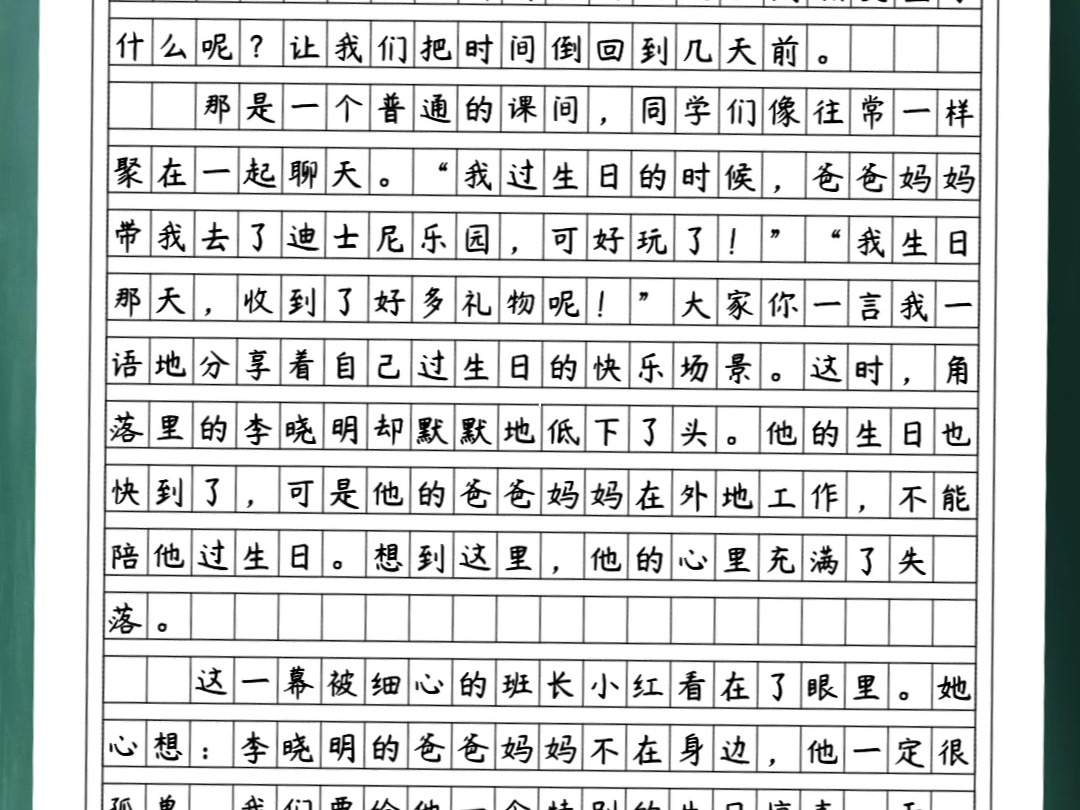 什么呢？让我们把时间倒回到几天前。
那是一个普通的课间，同学们像往常一样
聚在一起聊天。“我过生日的时候，爸爸妈妈
带我去了迪士尼乐园，可好玩了！”“我生日
那天，收到了好多礼物呢！”大家你一言我一
语地分享着自己过生日的快乐场景。这时，角
落里的李晓明却默默地低下了头。他的生日也
快到了，可是他的爸爸妈妈在外地工作，不能
陪他过生日。想到这里，他的心里充满了失
落。
这一幕被细心的班长小红看在了眼里。她
心想：李晓明的爸爸妈妈不在身边，他一定很